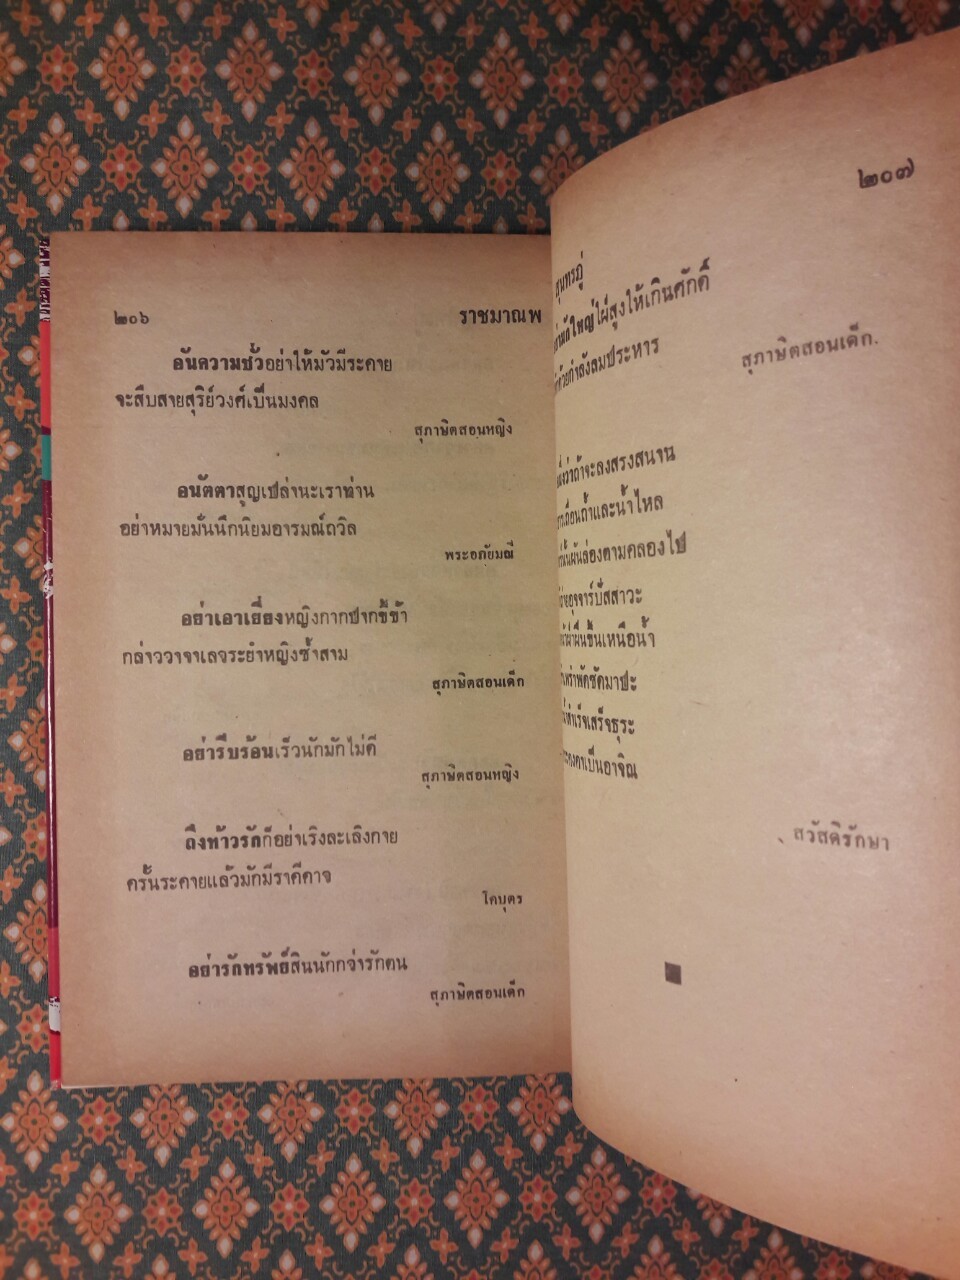 ๒๐๖
ราชมาณพ
อันความชั่วอย่าให้มัวมีระคาย
จะสืบสายสุริย์วงศ์เป็นมงคล
สุภาษิตสอนหญิง
อนัตตาสูญเปล่านะเราท่าน
อย่าหมายมั่นนึกนิยมอารมณ์ถวิล
พระอภัยมณี
อย่าเอาเยี่ยงหญิงกากปากขี้ข้า
กล่าววาจาเลจระยำหญิงซ้ำสาม
สุภาษิตสอนเด็ก
อย่ารีบร้อนเร็วนักมักไม่ดี
สุภาษิตสอนหญิง
ถึงท้าวรักก็อย่าเริงละเลิงกาย
ครั้นระคายแล้วมักมีราคีคาจ
โคบุตร
อย่ารักทรัพย์สินนักกว่ารักตน
สุภาษิตสอนเด็ก
๒๐๗
สุนทรภู่
ใหญ่ไผ่สูงให้เกินศักดิ์
ด้วยกำลังสมประหาร
สุภาษิตสอนเด็ก.
ว่าถ้าจะลงสรงสนาน
เถื่อนถ้ำและน้ำไหล
ผันล่องตามคลองไป
อุจจาร์ปัสสาวะ
ฝ่าฝืนขึ้นเหนือน้ำ
พัดซัดมาปะ
สำเร็จเสร็จธุระ
คงคาเป็นอาจิณ
สวัสดิรักษา